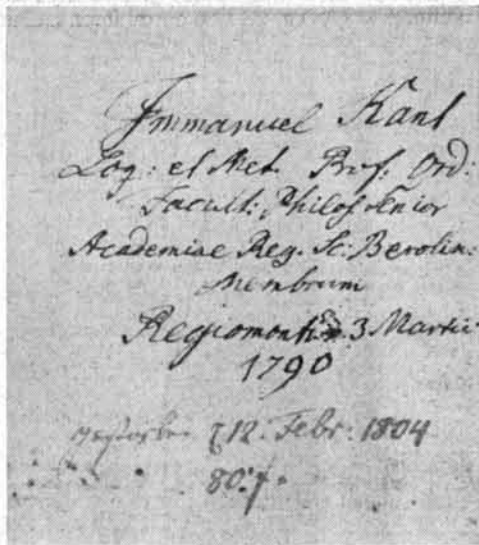 Immanuel Kant
Log: et Met. Prof. Ord:
Facult: Philos Senior
Academiae Reg. Sc: Berolin:
Membrum
Regiomonti 3 Martii
1790
gestorben 12. Febr: 1804
80